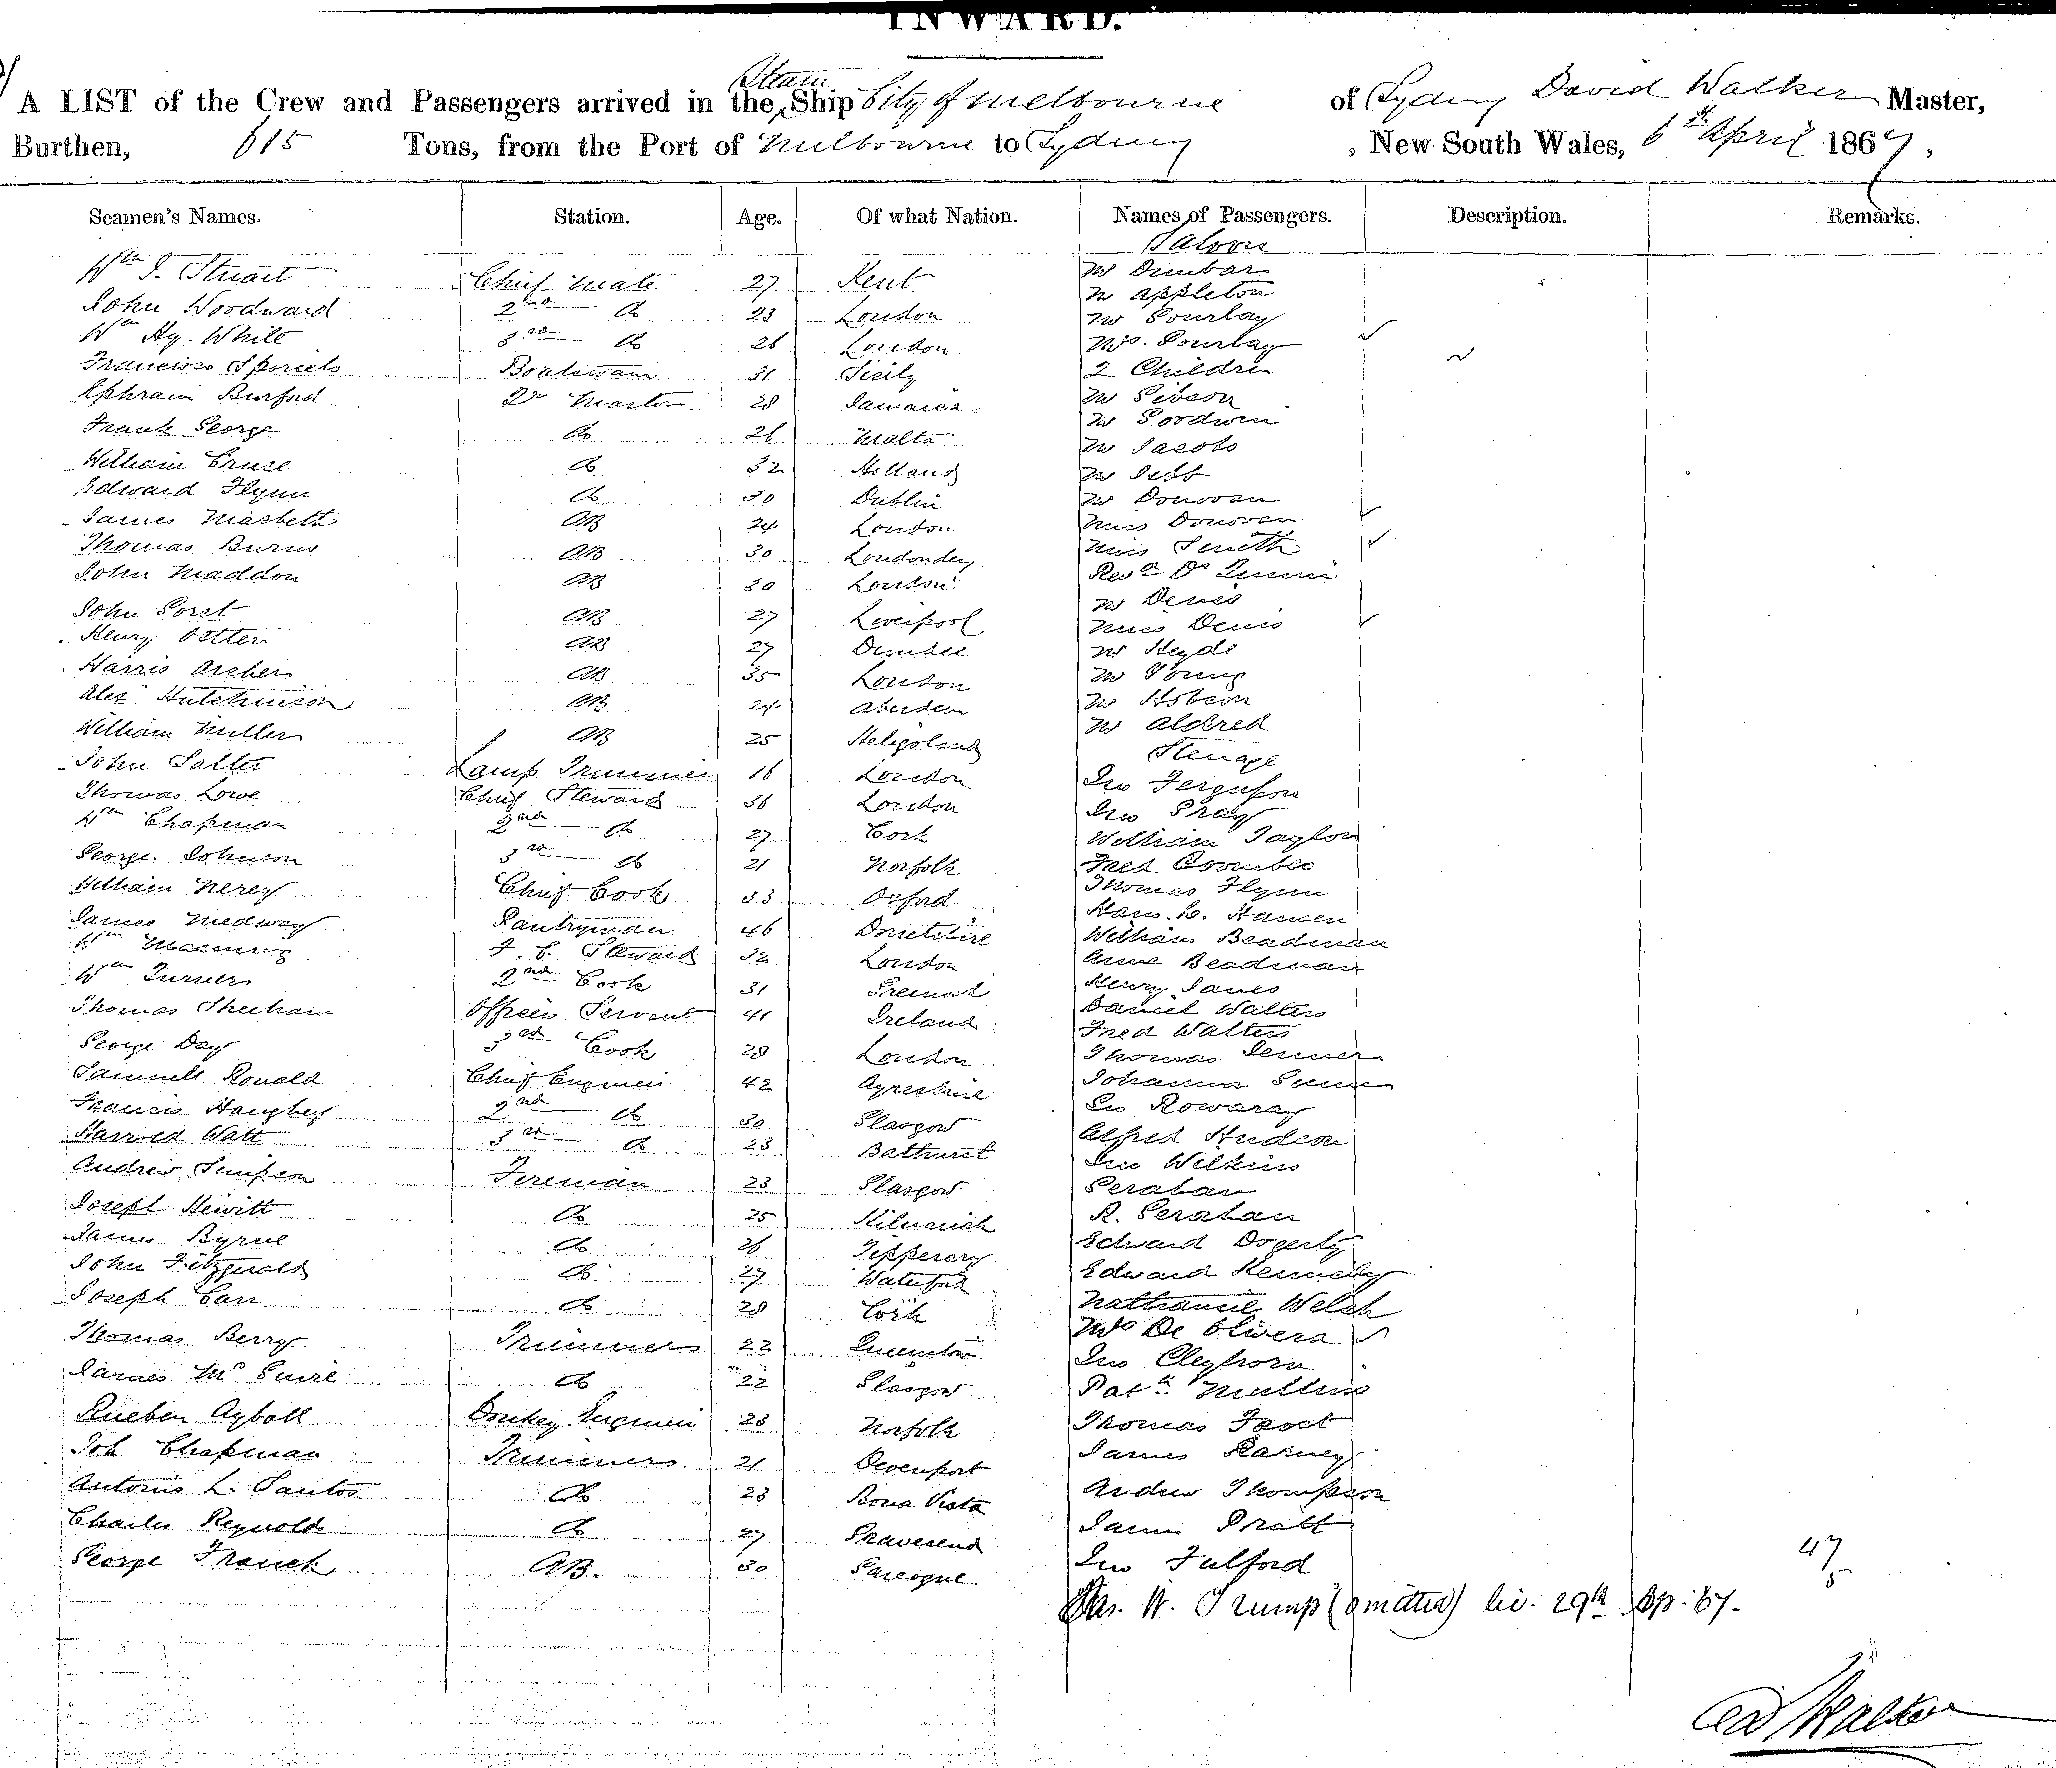 INWARD.
A LIST of the Crew and Passengers arrived in the Steam Ship City of Melbourne of Sydney David Walker Master,
Burthen, 615 Tons, from the Port of Melbourne to Sydney, New South Wales, 6th April 1867,
Seamen's Names. Station. Age. Of what Nation. Names of Passengers. Description. Remarks.
Saloon
Wm J. Stuart Chief Mate 27 Kent Mr Dunbar
John Woodward 2nd Do 23 London Mr Appleton
Wm Hy. White 3rd Do 26 London Mr Gourlay
Mrs. Gourlay
Francisco Boatswain 31 Sicily 2 Children
Ephraim Burford Qr Master 28 Jamaica Mr Gibson
Frank George Do 26 Malta Mr Goodwin
William Cruse Do 32 Holland Mr Jacobs
Edward Flynn Do 30 Dublin Mr Jebb
James Macbeth AB 24 London Mr Donovan
Miss Donovan
Thomas Burns AB 30 Londonderry Miss Smith
John Maddon AB 30 London Revd Dr
John AB 27 Liverpool Mr Denis
Miss Denis
Henry AB 27 Dundee Mr Heyde
Harris Archer AB 35 London Mr Young
Alexr Hutchinson AB 24 Aberdeen Mr
William Miller AB 25 Heligoland Mr Aldred
Steerage
John Salter Lamp Trimmer 16 London Jno Ferguson
Thomas Lowe Chief Steward 36 London Jno
Wm Chapman 2nd Do 27 Cork William Taylor
George Johnson 3rd Do 21 Norfolk Fred
William Nerey Chief Cook 33 Oxford Thomas Flynn
James Medway Pantryman 46 Dorsetshire Hans. C. Hansen
Wm Manning F. C. Steward 32 London William Beadman
Anne Beadman
Wm Turner 2nd Cook 31 Henry Janes
Thomas Sheehan Officers Servant 41 Ireland Daniel Walters
Fred Walters
George Day 3rd Cook 28 London Thomas
Samuell Ronald Chief Engineer 42 Ayreshire Johanna
Francis Haughey 2nd Do 30 Glasgow Jno
Harrold Watt 3rd Do 23 Bathurst Alfred Hudson
Andrew Simpson Fireman 23 Glasgow Jno Wilkins
Geraban
Joseph Hewitt Do 25 R. Geraban
James Byrne Do 26 Tipperary Edward Dogerty
John Fitzgerald Do 27 Waterford Edward Kennedy
Joseph Carr Do 28 Cork Nathaniel Welch
Thomas Berry Trimmer 22 Mrs De Olivera
Jno Cleghorn
James McGuire Do 22 Glasgow Patk Mullins
Rueben Ayboll Donkey Engineer 23 Norfolk Thomas
Joh Chapman Trimmer 21 Devenport James
Antonio L. Santos Do 23 Bona Vista Andrew Thompson
Charles Reynolds Do 27 Gravesend James Pratt
George French AB. 30 Jno Fulford
W. Trump (omitted) 29th Ap. 67.
47
5
D Walker